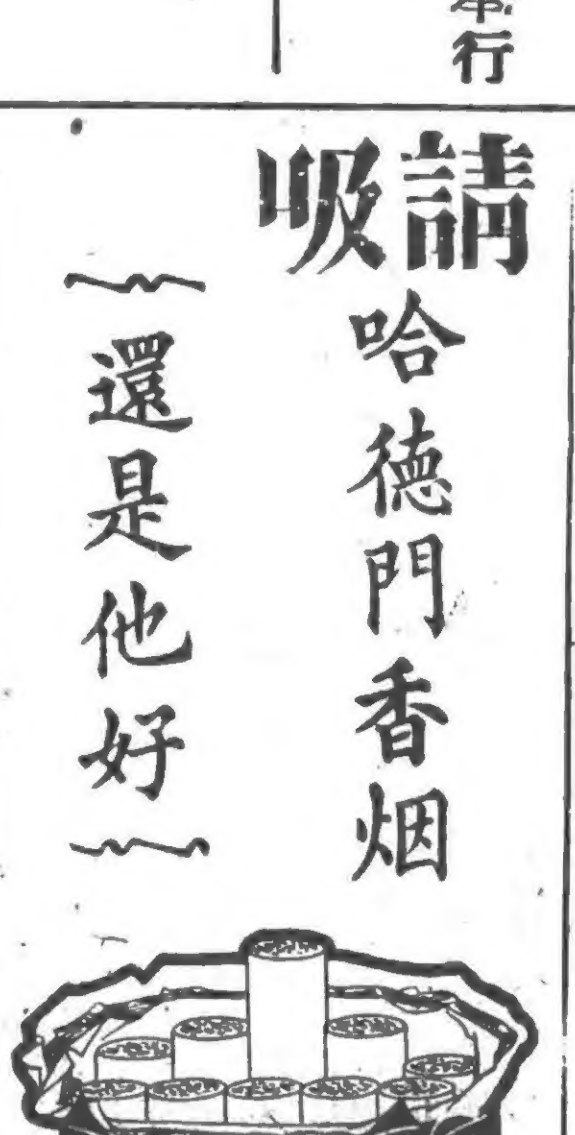 行
請吸
哈德門香烟
還是他好